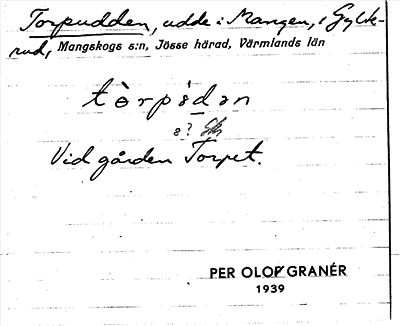 Torpudden, udde i Mangen, i Gylte-
rud, Mangskogs s:n, Jösse härad, Värmlands län
tòrpèdən
Vid gården Torpet.
PER OLOF GRANÉR
1939